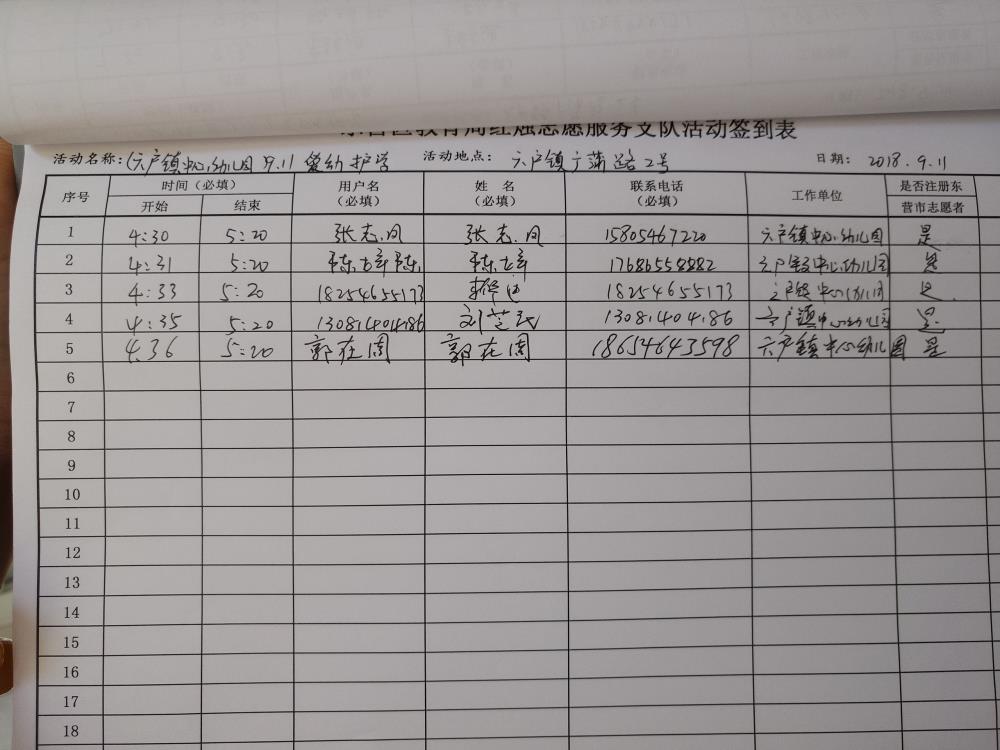 东营区教育局红烛志愿服务支队活动签到表
活动名称：(六户镇中心幼儿园 9.11 爱幼护学 活动地点： 六户镇广蒲路2号 日期： 2018.9.11
序号 时间（必填） 用户名（必填） 姓 名（必填） 联系电话（必填） 工作单位 是否注册东营市志愿者
开始 结束
1 4:30 5:20 张志凤 张志凤 15805467220 六户镇中心幼儿园 是
2 4:31 5:20 17686558882 六户镇中心幼儿园 是
3 4:33 5:20 18254655173 18254655173 六户镇中心幼儿园 是
4 4:35 5:20 13081404186 刘芝民 13081404186 六户镇中心幼儿园 是
5 4:36 5:20 郭在周 郭在周 18654643598 六户镇中心幼儿园 是
6
7
8
9
10
11
12
13
14
15
16
17
18